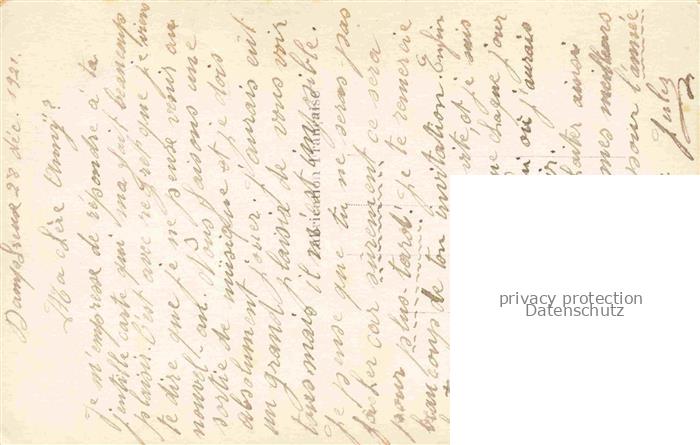 Dampfreux 28 déc. 1921.
Ma chère Anny!
Je m'empresse de répondre à ta
gentille carte qui ma fait beaucoup
plaisir. C'est avec regret que je viens
te dire que je ne peux venir au
nouvel-an. Nous faisons une
sortie de musique et je dois
absolument jouer. J'aurais eut
un grand plaisir de vous voir
tous mais il m'est impossible.
Je pense que tu ne seras pas
fâcher car sûrement ce sera
pour plus tard. Je te remercie
beaucoup de ton invitation. Enfin
vite et je suis
chaque jour
où j'aurais
ainsi
mes meilleurs
pour l'année
Jules
Fabrication Française
privacy protection
Datenschutz